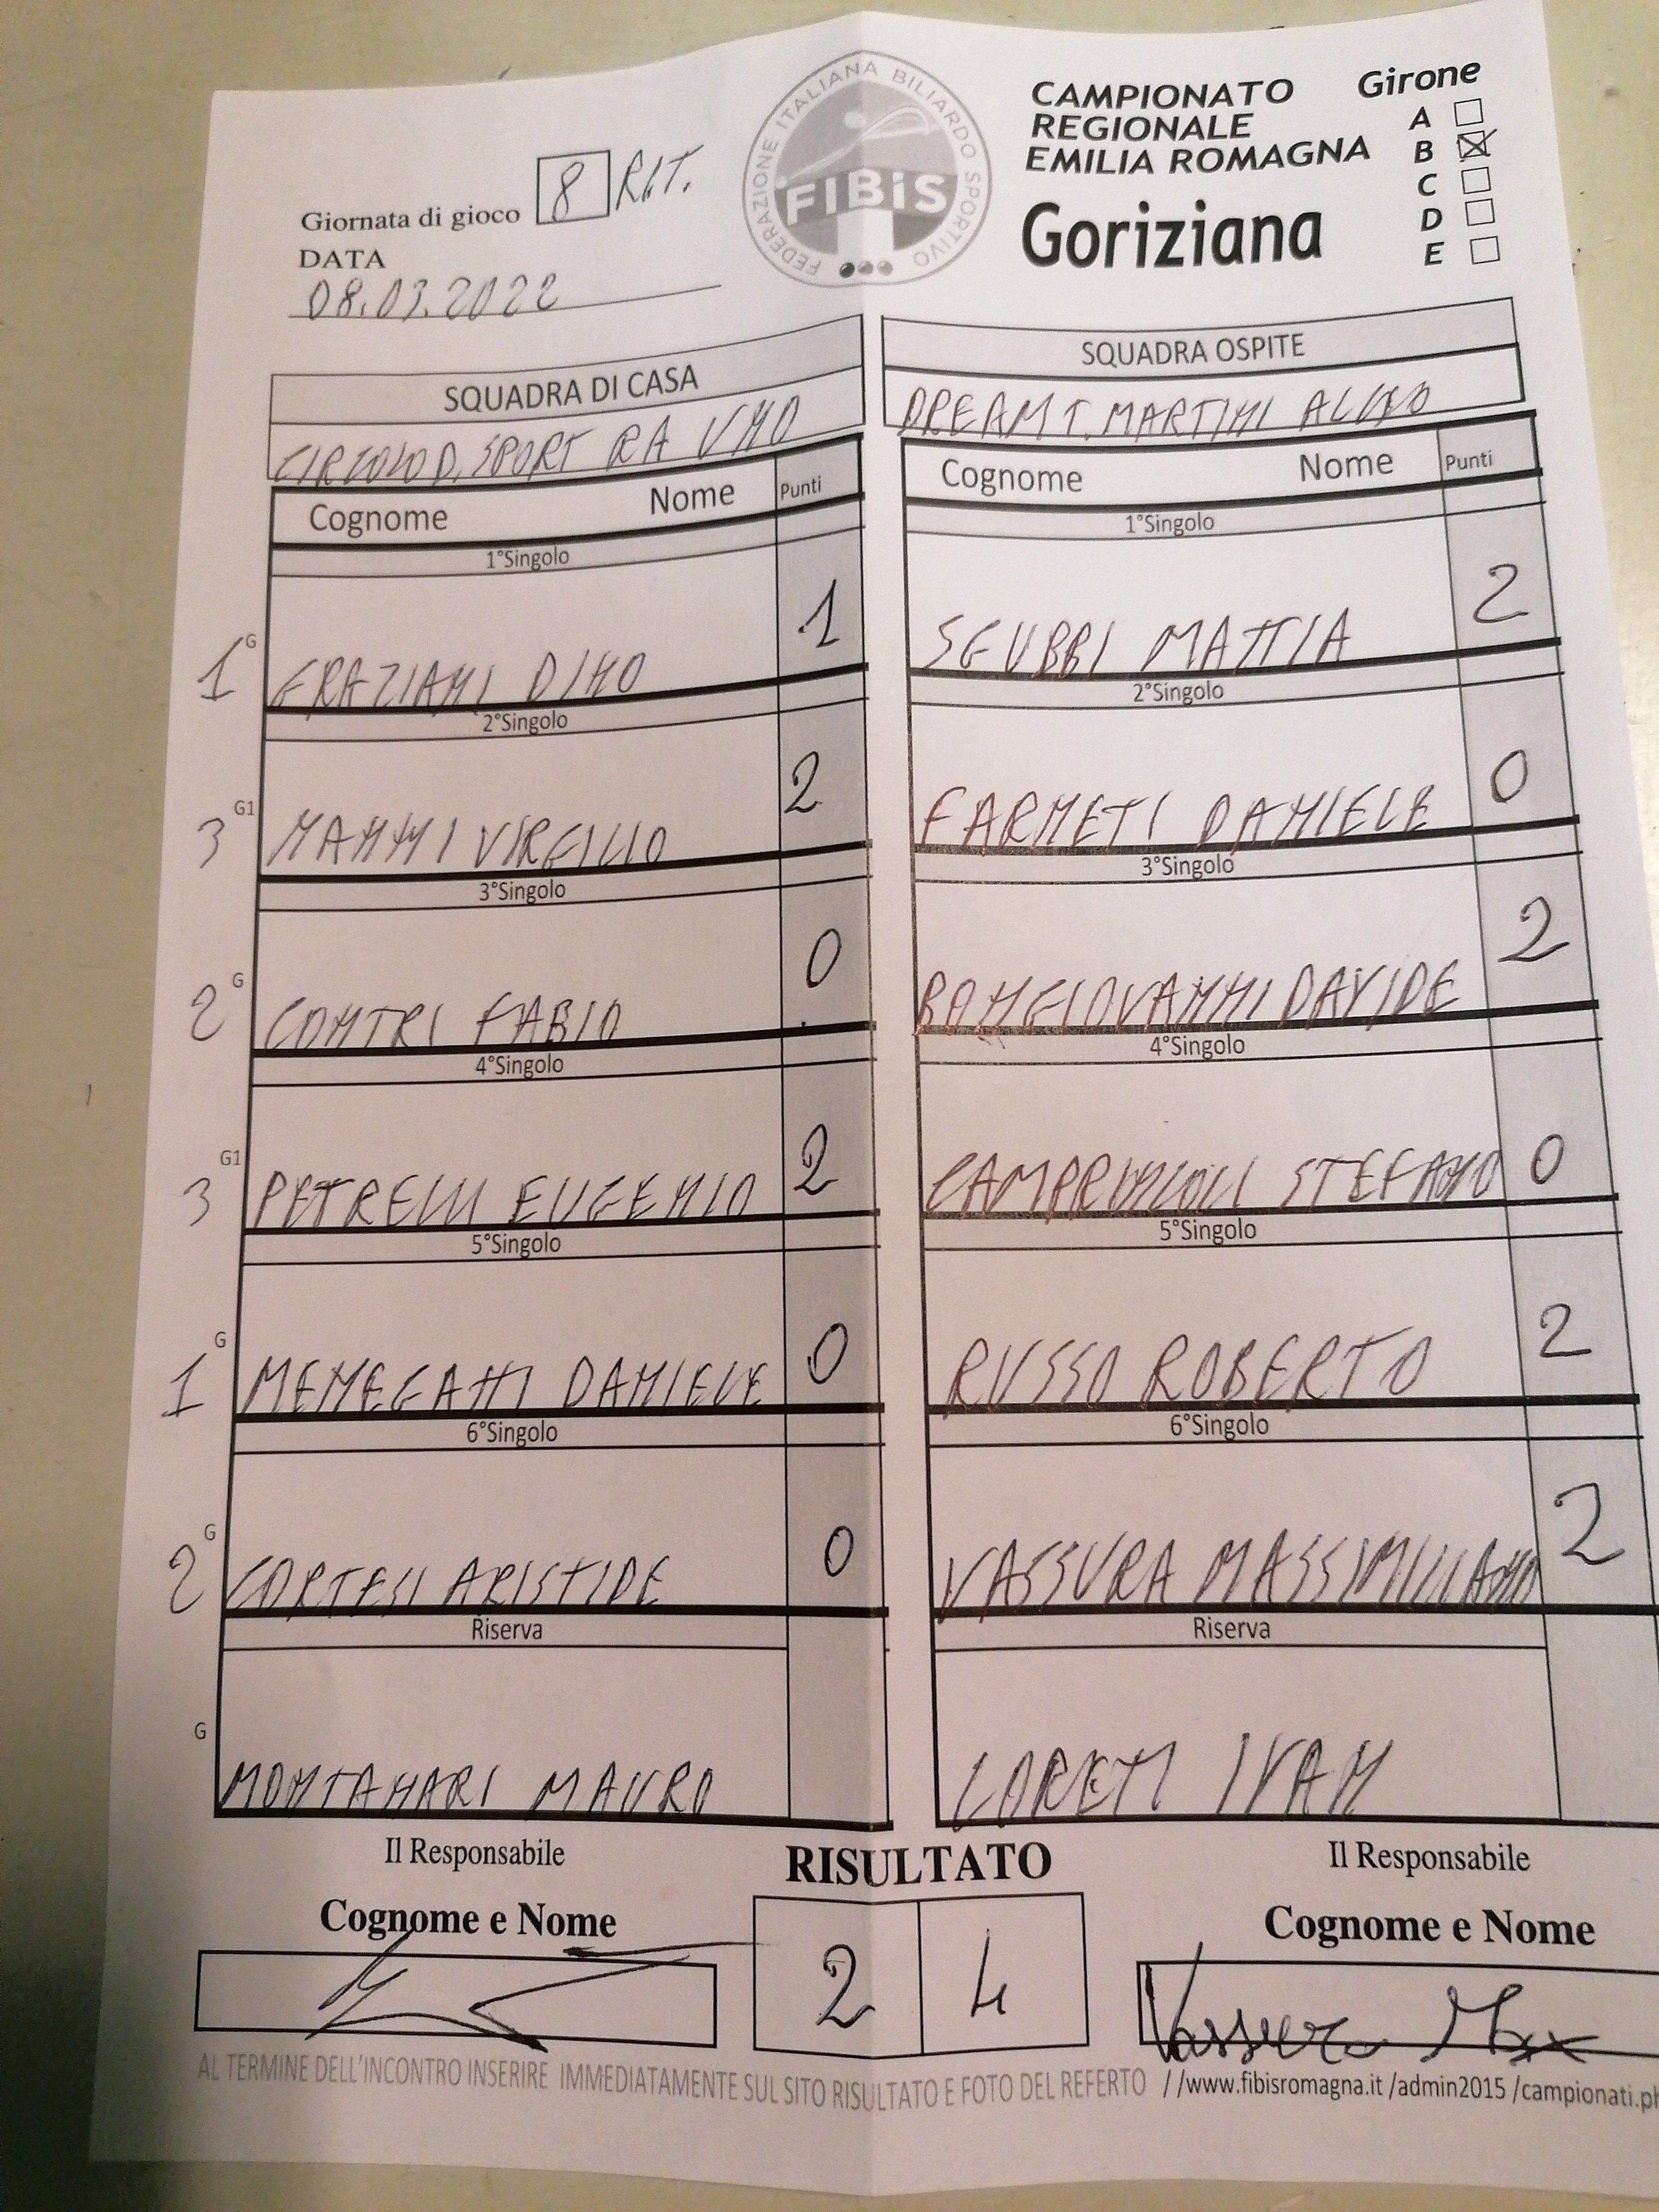 FEDERAZIONE ITALIANA BILIARDO SPORTIVO
FIBiS
CAMPIONATO
REGIONALE
EMILIA ROMAGNA
Goriziana
Girone
A
B
C
D
E
Giornata di gioco 8 RIT.
DATA
08.03.2022
SQUADRA DI CASA
CIRCOLO D. SPORT RA UNO
Cognome Nome Punti
1°Singolo
1 G GRAZIANI DINO 1
2°Singolo
3 G1 NANNI VIRGILIO 2
3°Singolo
2 G CONTRI FABIO 0
4°Singolo
3 G1 PETRELLI EUGENIO 2
5°Singolo
1 G MENEGATTI DANIELE 0
6°Singolo
2 G CORTESI ARISTIDE 0
Riserva
G MONTANARI MAURO
SQUADRA OSPITE
DREAM T. MARTINI
Cognome Nome Punti
1°Singolo
SGUBBI MATTIA 2
2°Singolo
FARNETI DANIELE 0
3°Singolo
BONGIOVANNI DAVIDE 2
4°Singolo
STEFANO 0
5°Singolo
RUSSO ROBERTO 2
6°Singolo
VASSURA MASSIMILIANO 2
Riserva
LORETI IVAN
Il Responsabile
Cognome e Nome
RISULTATO
2 4
Il Responsabile
Cognome e Nome
Vassura Max
AL TERMINE DELL'INCONTRO INSERIRE IMMEDIATAMENTE SUL SITO RISULTATO E FOTO DEL REFERTO //www.fibisromagna.it /admin2015 /campionati.ph